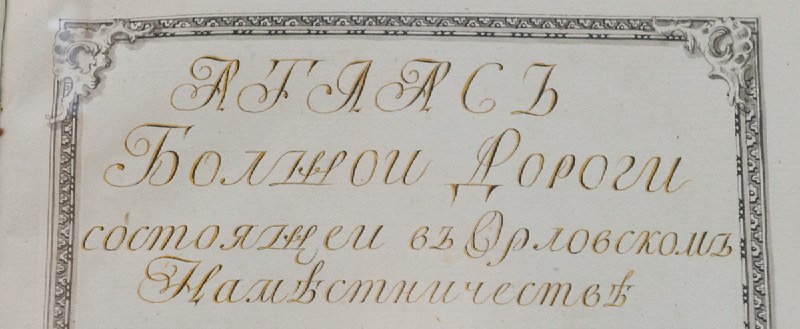 АТЛАСЪ
Болшои Дороги
состоящеи въ Орловскомъ
Намѣстничествѣ